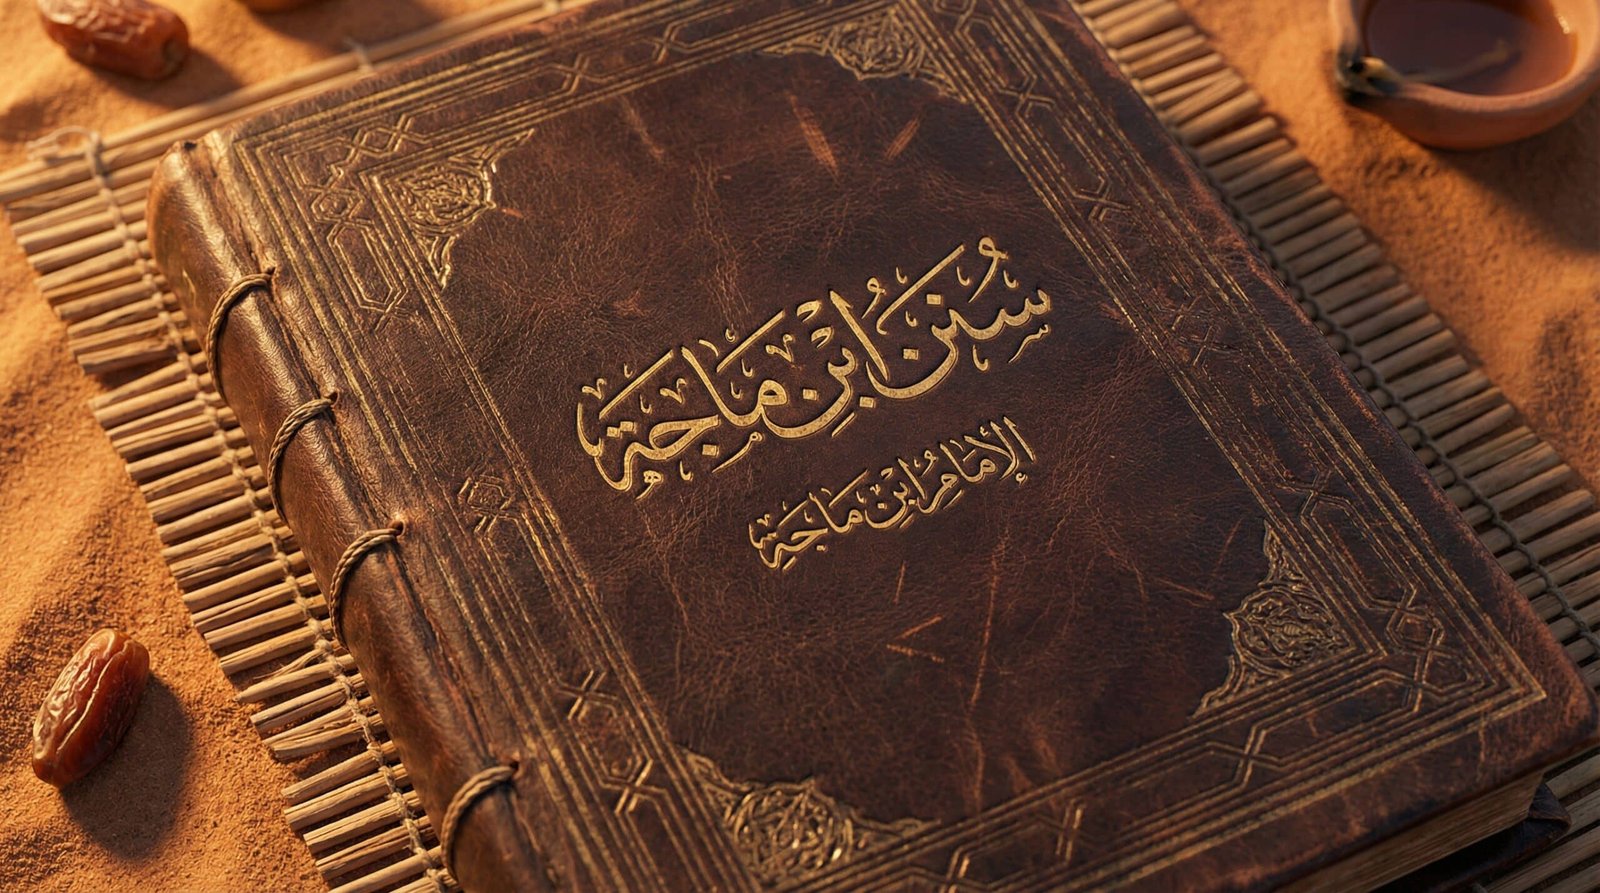 سُنَن ابْنِ مَاجَة
الإمَامِ ابْنِ مَاجَة